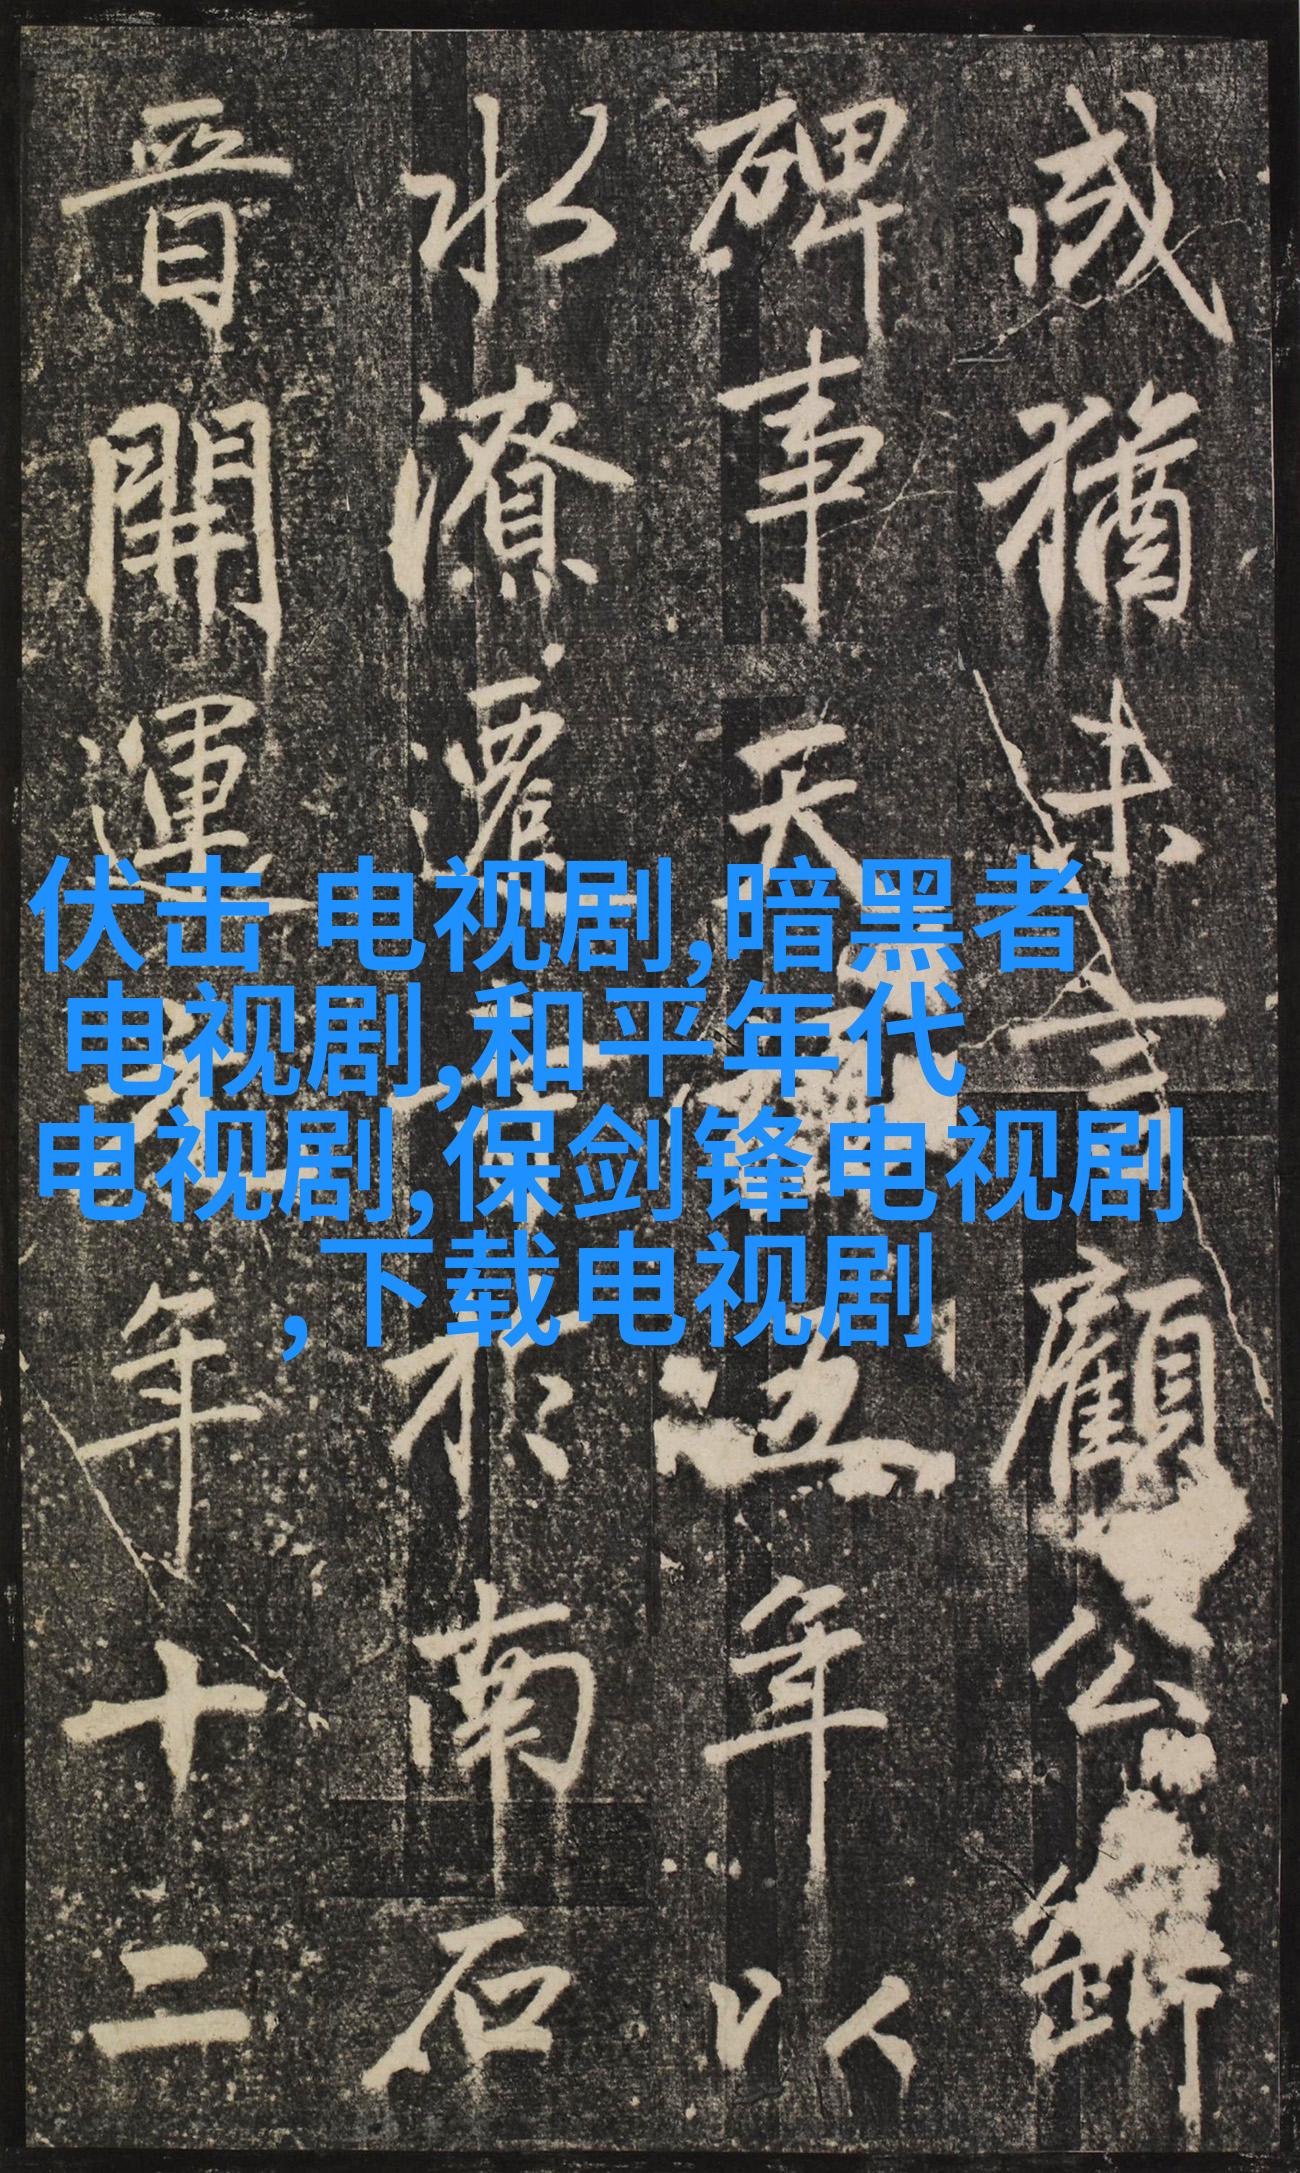 咸猶未立顧公
碑事天五年以
水潦遷於南石
晉開運年十二
伏击 电视剧,暗黑者
电视剧,和平年代
电视剧,保剑锋电视剧
,下载电视剧